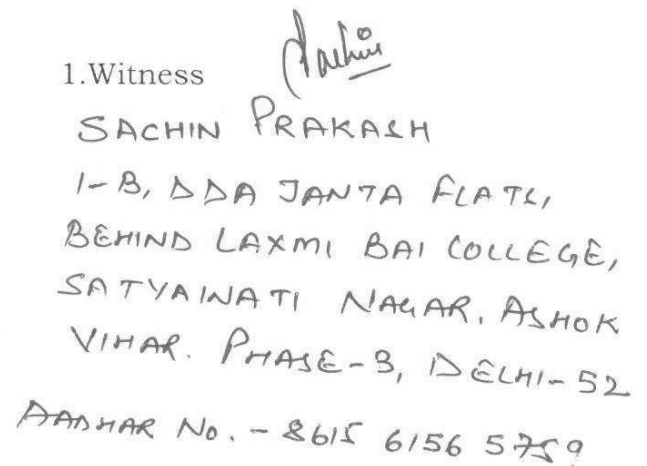 1.Witness
Sachin
SACHIN PRAKASH
1-B, DDA JANTA FLATS,
BEHIND LAXMI BAI COLLEGE,
SATYAWATI NAGAR, ASHOK
VIHAR. PHASE-3, DELHI-52
AADHAR NO. - 8615 6156 5759